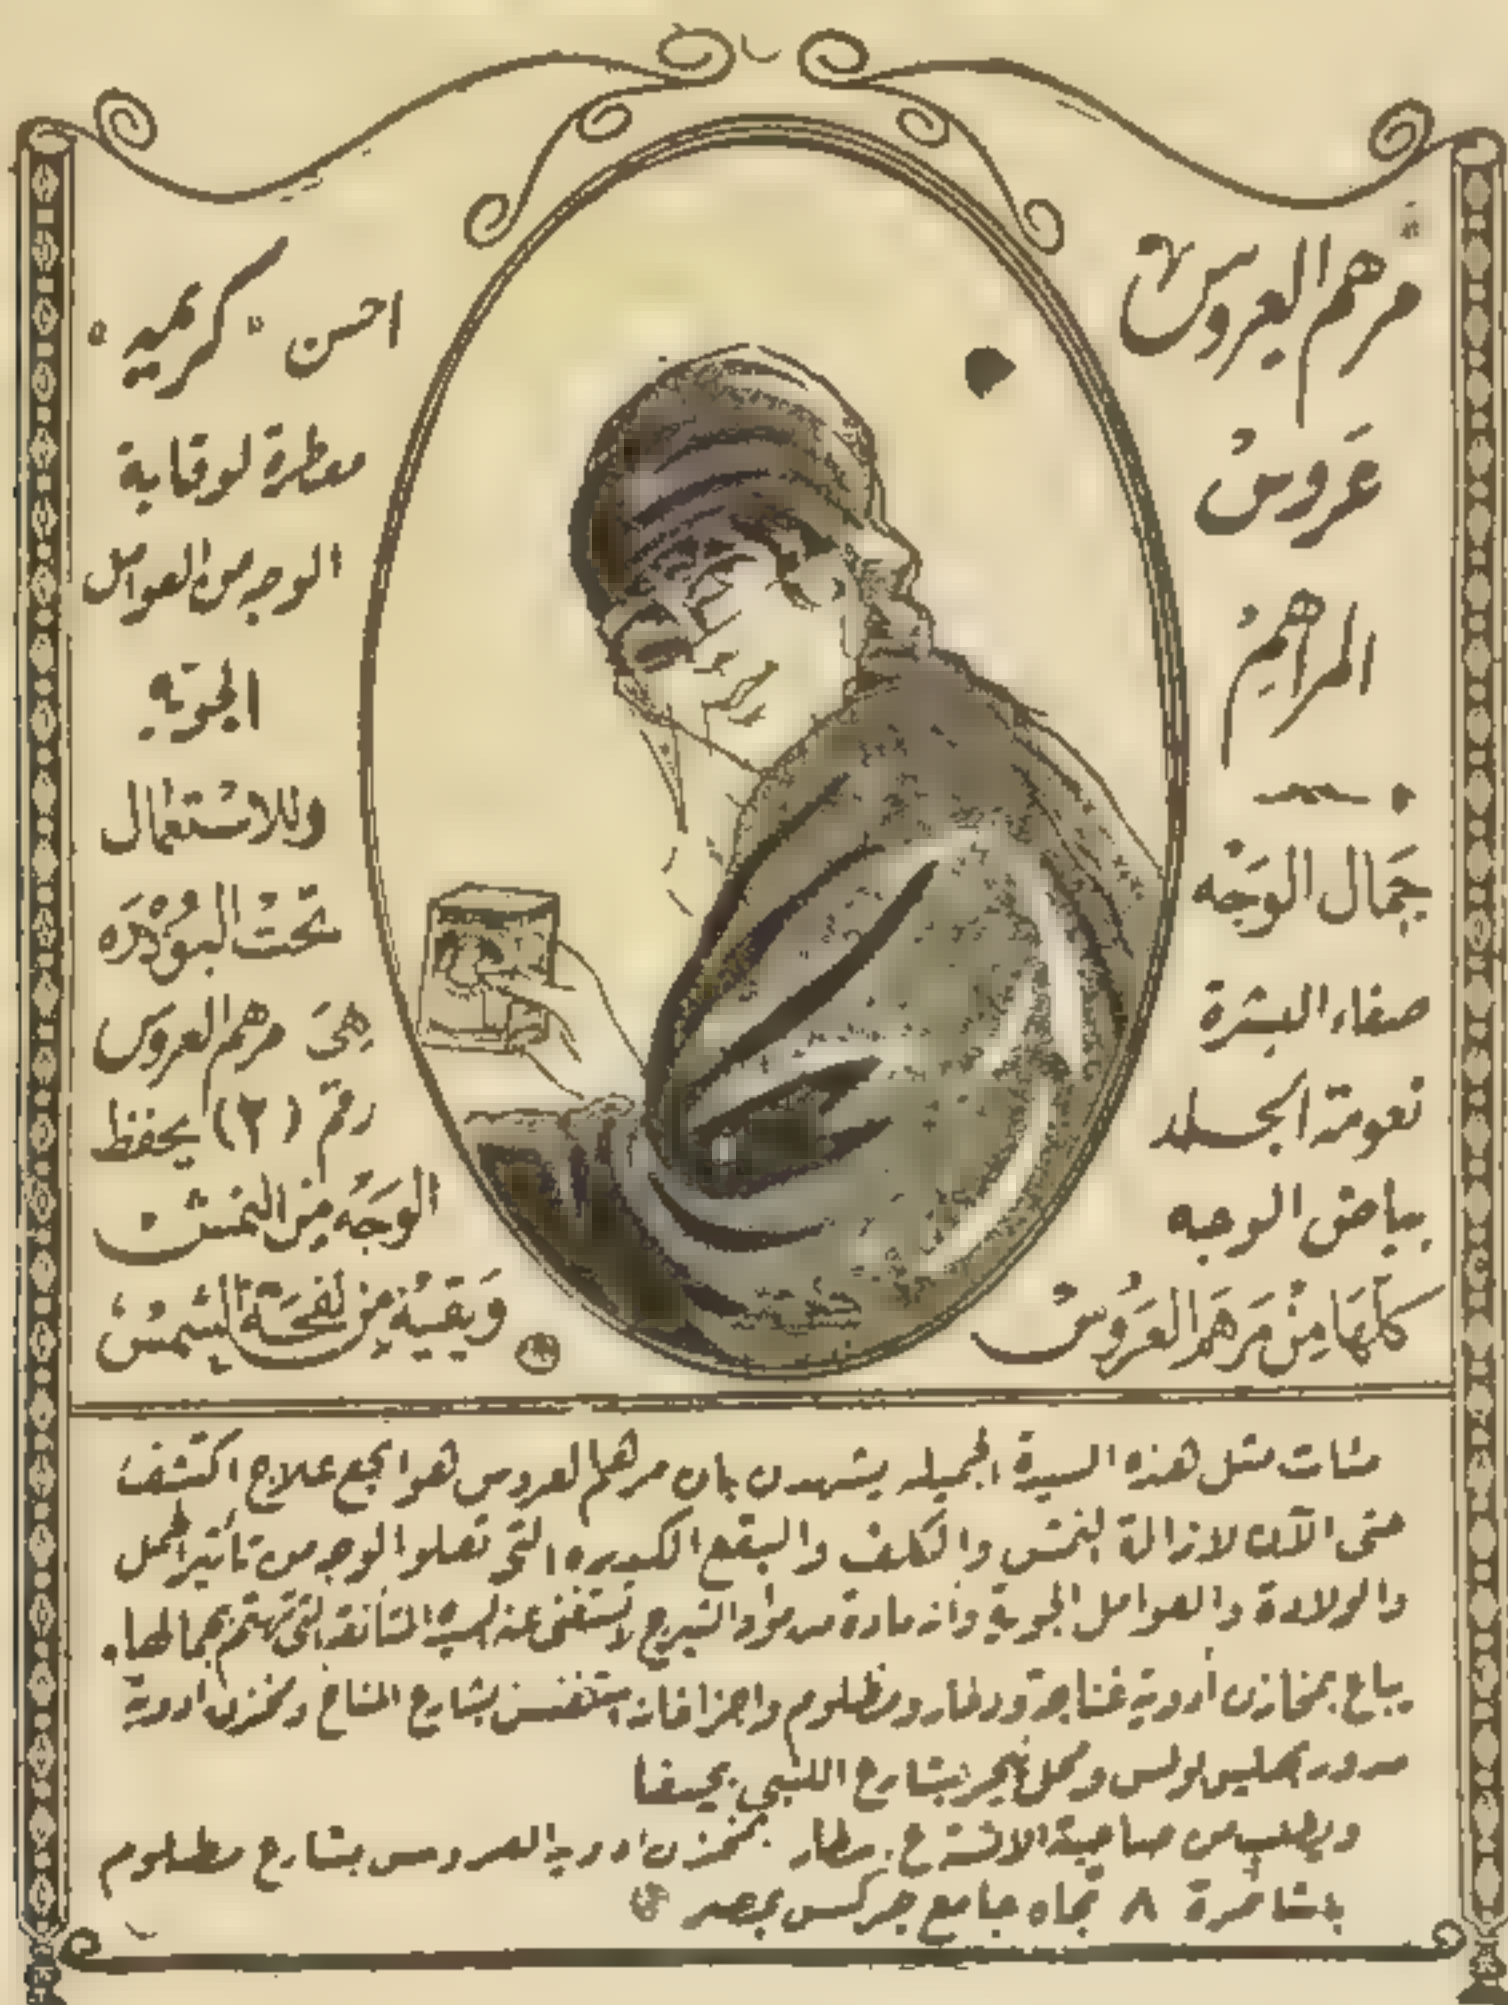 مرهم العروس
عروس
المراهم
جمال الوجه
صفاء البشرة
نعومة الجلد
بياض الوجه
كلها من مرهم العروس
احسن "كريمه"
معطرة لوقاية
الوجه من العوامل
الجويه
وللاستعمال
تحت البودره
هى مرهم العروس
رقم (٢) يحفظ
الوجه من النمش
ويقيه من لفحة الشمس
مئات مثل هذه السيدة الجميله يشهدن بان مرهم العروس هو انجع علاج اكتشف
حتى الآن لازالة النمش والكلف والبقع الكبديه التى تعلو الوجه من تأثير الحمل
والولادة والعوامل الجوية وأنه مادة من مواد التبرج لا تستغنى عنه السيدة المتأنقة التى تهتم بجمالها.
يباع بمخازن أدوية عناجة ودلمار ومظلوم واجزاخانة بشارع المناخ ومخزن ادوية
بولس ومحل بشارع اللنبي بحيفا
ويطلب من صاحبة ع. مطار بمخزن ادوية العروس بشارع مظلوم
باشا نمرة ٨ تجاه جامع جركس بمصر